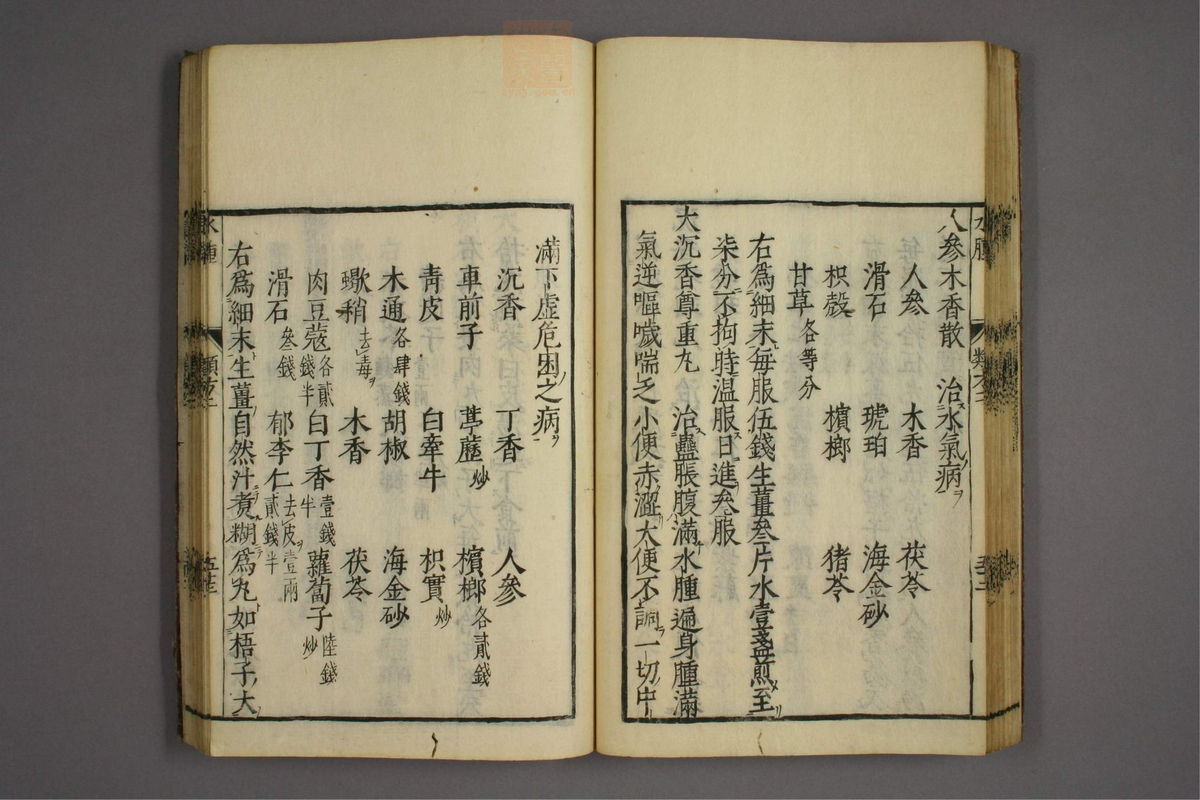 人參木香散 治水氣病
人參 木香 茯苓
滑石 琥珀 海金砂
枳殼 檳榔 猪苓
甘草各等分
右爲細末每服伍錢生薑叁片水壹盞煎至
柒分不拘時温服日進叁服
大沉香尊重丸 治蠱脹腹滿水腫遍身腫滿
氣逆嘔噦喘乏小便赤澀大便不調一切中
滿下虛危困之病
沉香 丁香 人參
車前子 葶藶炒 檳榔各貳錢
青皮 白牽牛 枳實炒
木通各肆錢 胡椒 海金砂
蠍稍去毒 木香 茯苓
肉豆蔻各貳錢半 白丁香壹錢半 蘿蔔子陸錢炒
滑石叁錢 郁李仁去皮壹兩貳錢半
右爲細末生薑自然汁煮糊爲丸如梧子大
水腫